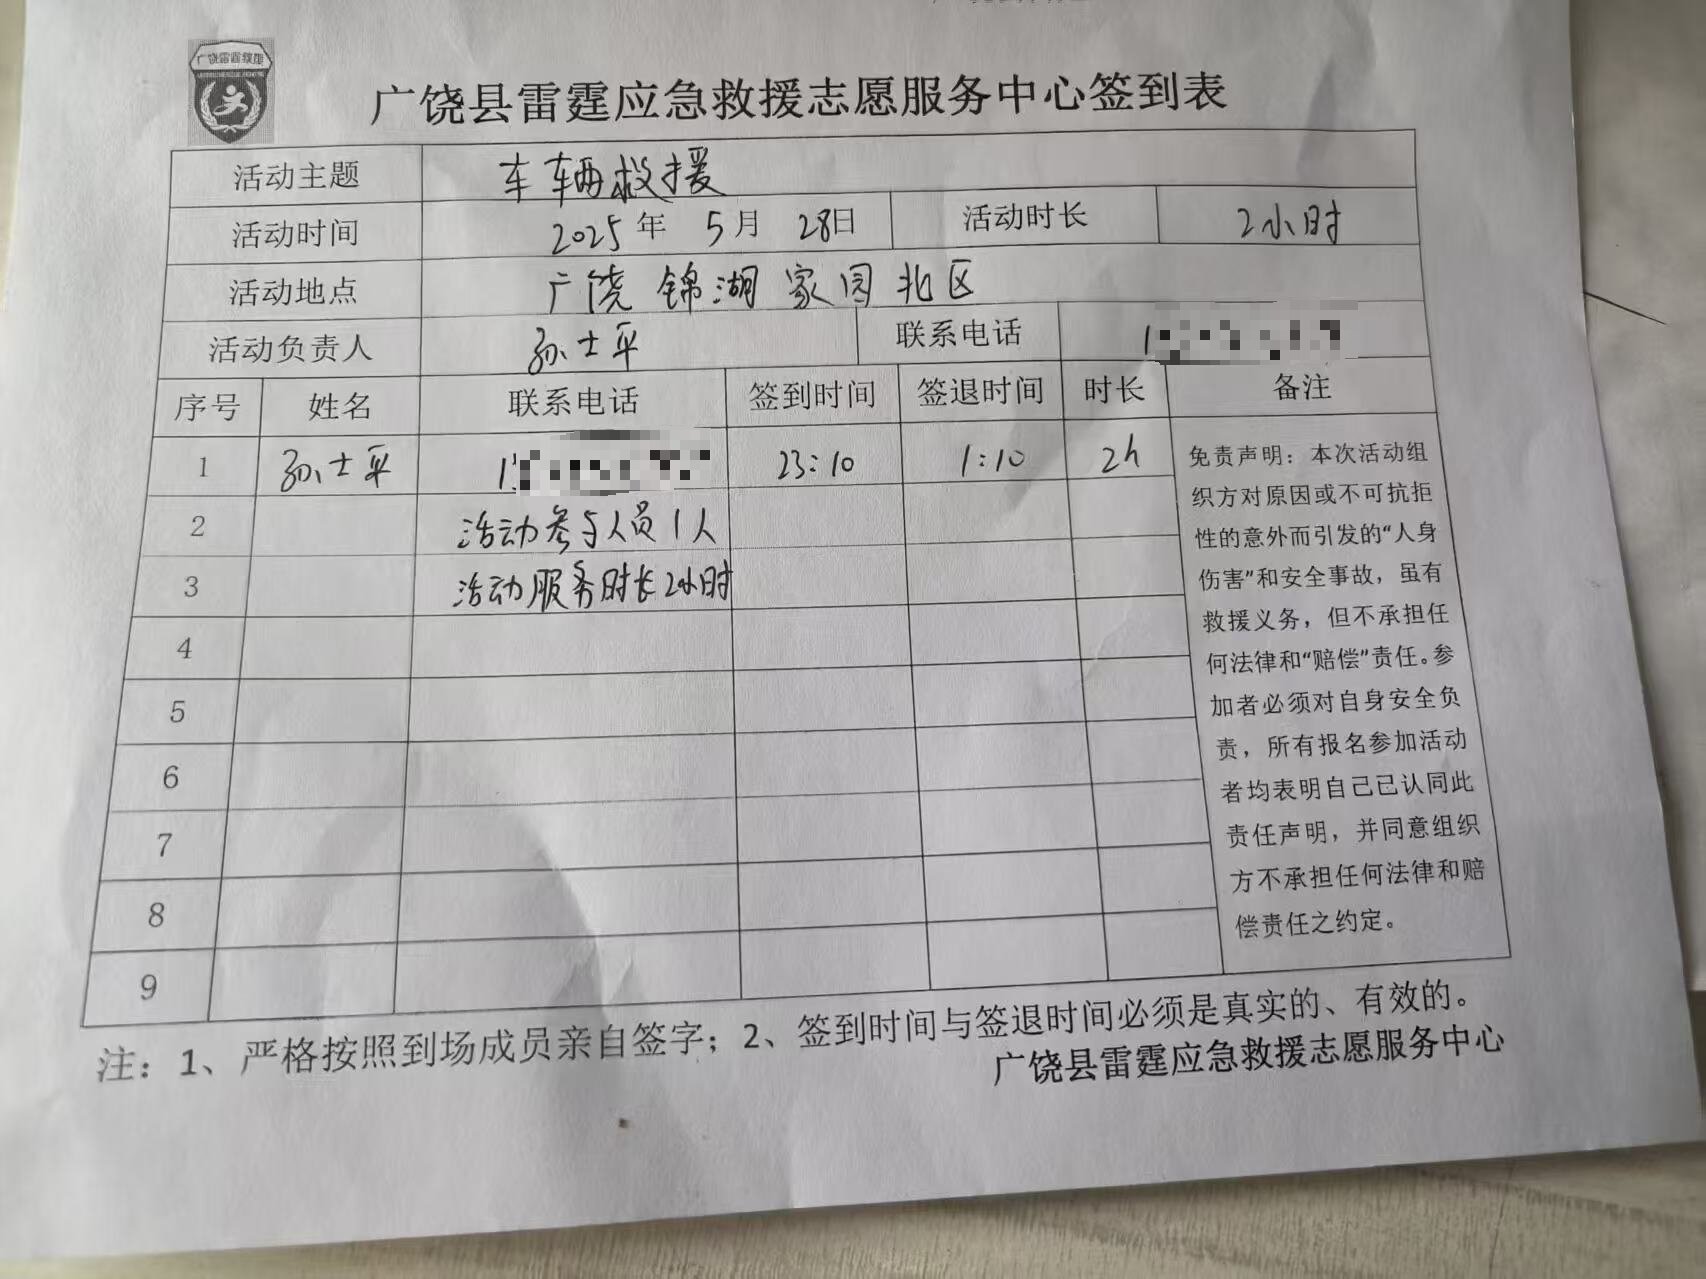 广饶县雷霆应急救援志愿服务中心签到表
活动主题 车辆救援
活动时间 2025年 5月 28日 活动时长 2小时
活动地点 广饶锦湖家园北区
活动负责人 孙士平 联系电话 1
序号 姓名 联系电话 签到时间 签退时间 时长 备注
1 孙士平 1 23:10 1:10 2h
2 活动参与人员1人
3 活动服务时长2小时
4
5
6
7
8
9
免责声明：本次活动组
织方对原因或不可抗拒
性的意外而引发的“人身
伤害”和安全事故，虽有
救援义务，但不承担任
何法律和“赔偿”责任。参
加者必须对自身安全负
责，所有报名参加活动
者均表明自己已认同此
责任声明，并同意组织
方不承担任何法律和赔
偿责任之约定。
注：1、严格按照到场成员亲自签字；2、签到时间与签退时间必须是真实的、有效的。
广饶县雷霆应急救援志愿服务中心